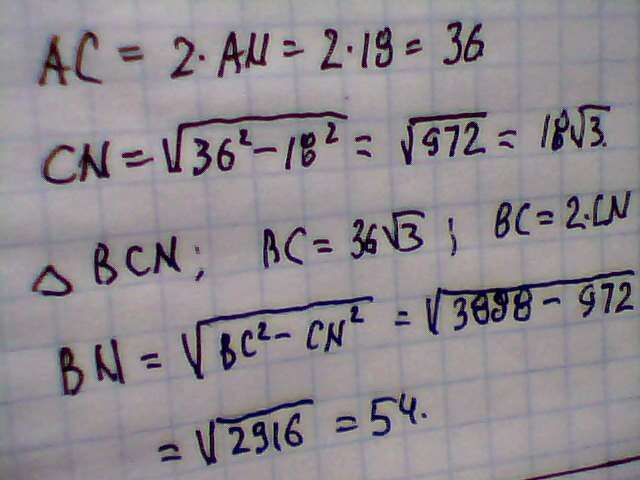 AC = 2·AN = 2·18 = 36
CN = √36² − 18² = √972 = 18√3.
△ BCN; BC = 36√3; BC = 2·CN
BN = √BC² − CN² = √3888 − 972
= √2916 = 54.